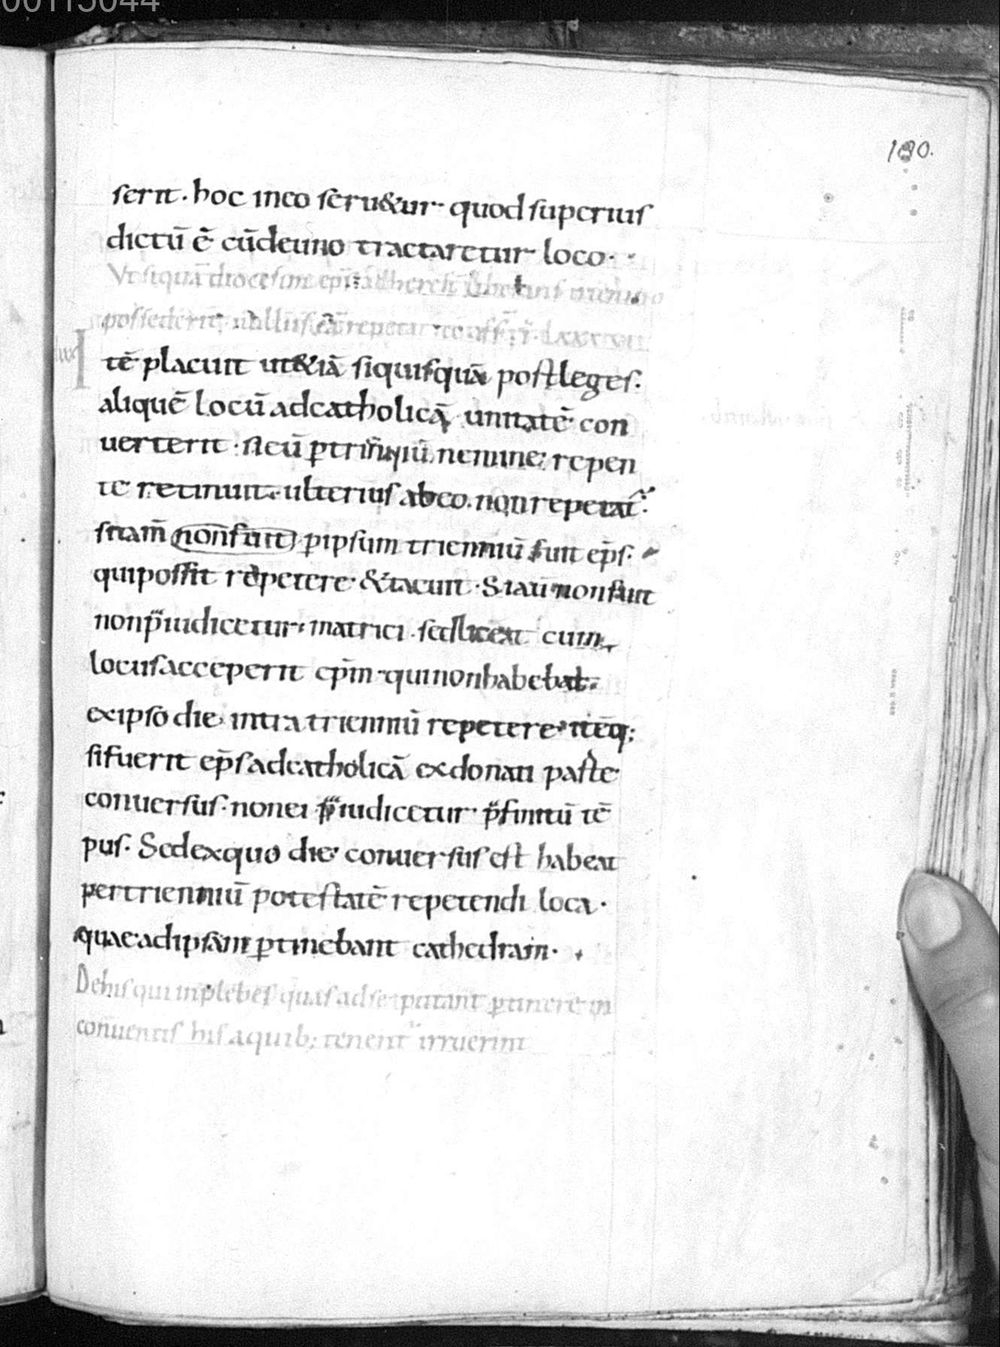 00115044
180.
serit. hoc in eo seru&ur quod superius
dictū ē cū de uno tractaretur loco.
Vt si quā diocesim ep̄m
possederit, nullus eā repetat
tē placuit ut &iā siquis quā post leges.
aliquē locū ad catholicā unitatē con
uerterit. si eū nemine repen
te retinuit. ulterius ab eo. non repetat.
si tam̄ non fuit p ipsum trienniū fuit ep̄s.
qui possit repetere & tacuit. Si aū non fuit
non p̄iudicetur matrici. sed liceat cum
locus acceperit ep̄m qui non habebat.
ex ipso die intra trienniū repetere. itēq;
si fuerit ep̄s ad catholicā ex donati parte
conuersus. non ei p̄iudicetur p̄finitū tē
pus. Sed ex quo die conuersus est habeat
per trienniū potestatē repetendi loca.
quae ad ipsam ptinebant cathedram.
De his qui in plebes quas ad se putant ptinere in
conuentis his a quib; tenent irruerint